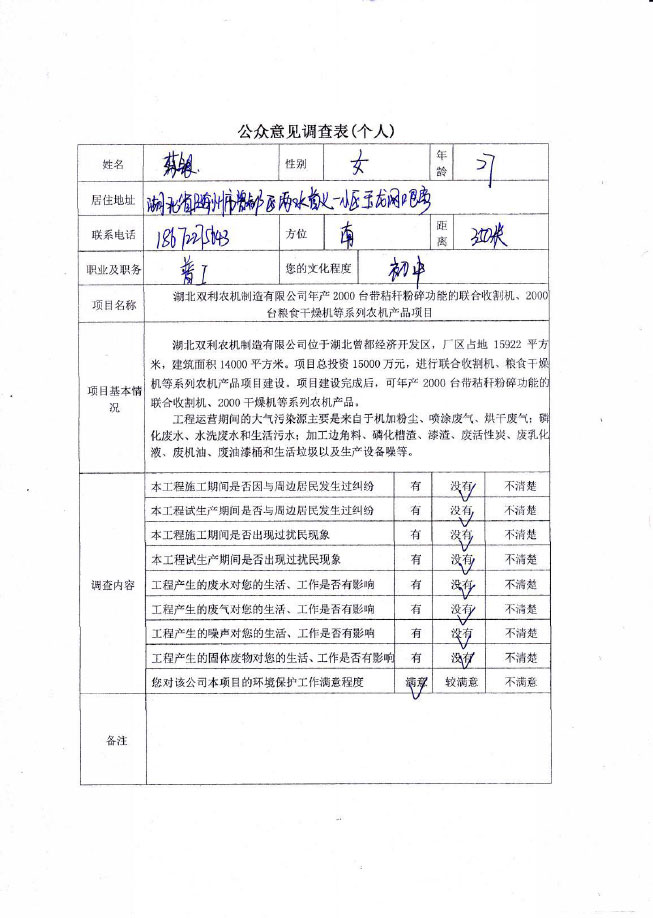 公众意见调查表(个人)
姓名 性别 女 年龄
居住地址
联系电话 方位 南 距离
职业及职务 普工 您的文化程度 初中
项目名称 湖北双利农机制造有限公司年产2000台带秸秆粉碎功能的联合收割机、2000
台粮食干燥机等系列农机产品项目
项目基本情况 湖北双利农机制造有限公司位于湖北曾都经济开发区,厂区占地 15922 平方
米,建筑面积 14000 平方米。项目总投资 15000 万元,进行联合收割机、粮食干燥
机等系列农机产品项目建设。项目建设完成后,可年产 2000 台带秸秆粉碎功能的
联合收割机、2000 干燥机等系列农机产品。
工程运营期间的大气污染源主要是来自于机加粉尘、喷涂废气、烘干废气;磷
化废水、水洗废水和生活污水;加工边角料、磷化槽渣、漆渣、废活性炭、废乳化
液、废机油、废油漆桶和生活垃圾以及生产设备噪等。
调查内容
本工程施工期间是否因与周边居民发生过纠纷 有 没有 不清楚
本工程试生产期间是否与周边居民发生过纠纷 有 没有 不清楚
本工程施工期间是否出现过扰民现象 有 没有 不清楚
本工程试生产期间是否出现过扰民现象 有 没有 不清楚
工程产生的废水对您的生活、工作是否有影响 有 没有 不清楚
工程产生的废气对您的生活、工作是否有影响 有 没有 不清楚
工程产生的噪声对您的生活、工作是否有影响 有 没有 不清楚
工程产生的固体废物对您的生活、工作是否有影响 有 没有 不清楚
您对该公司本项目的环境保护工作满意程度 满意 较满意 不满意
备注